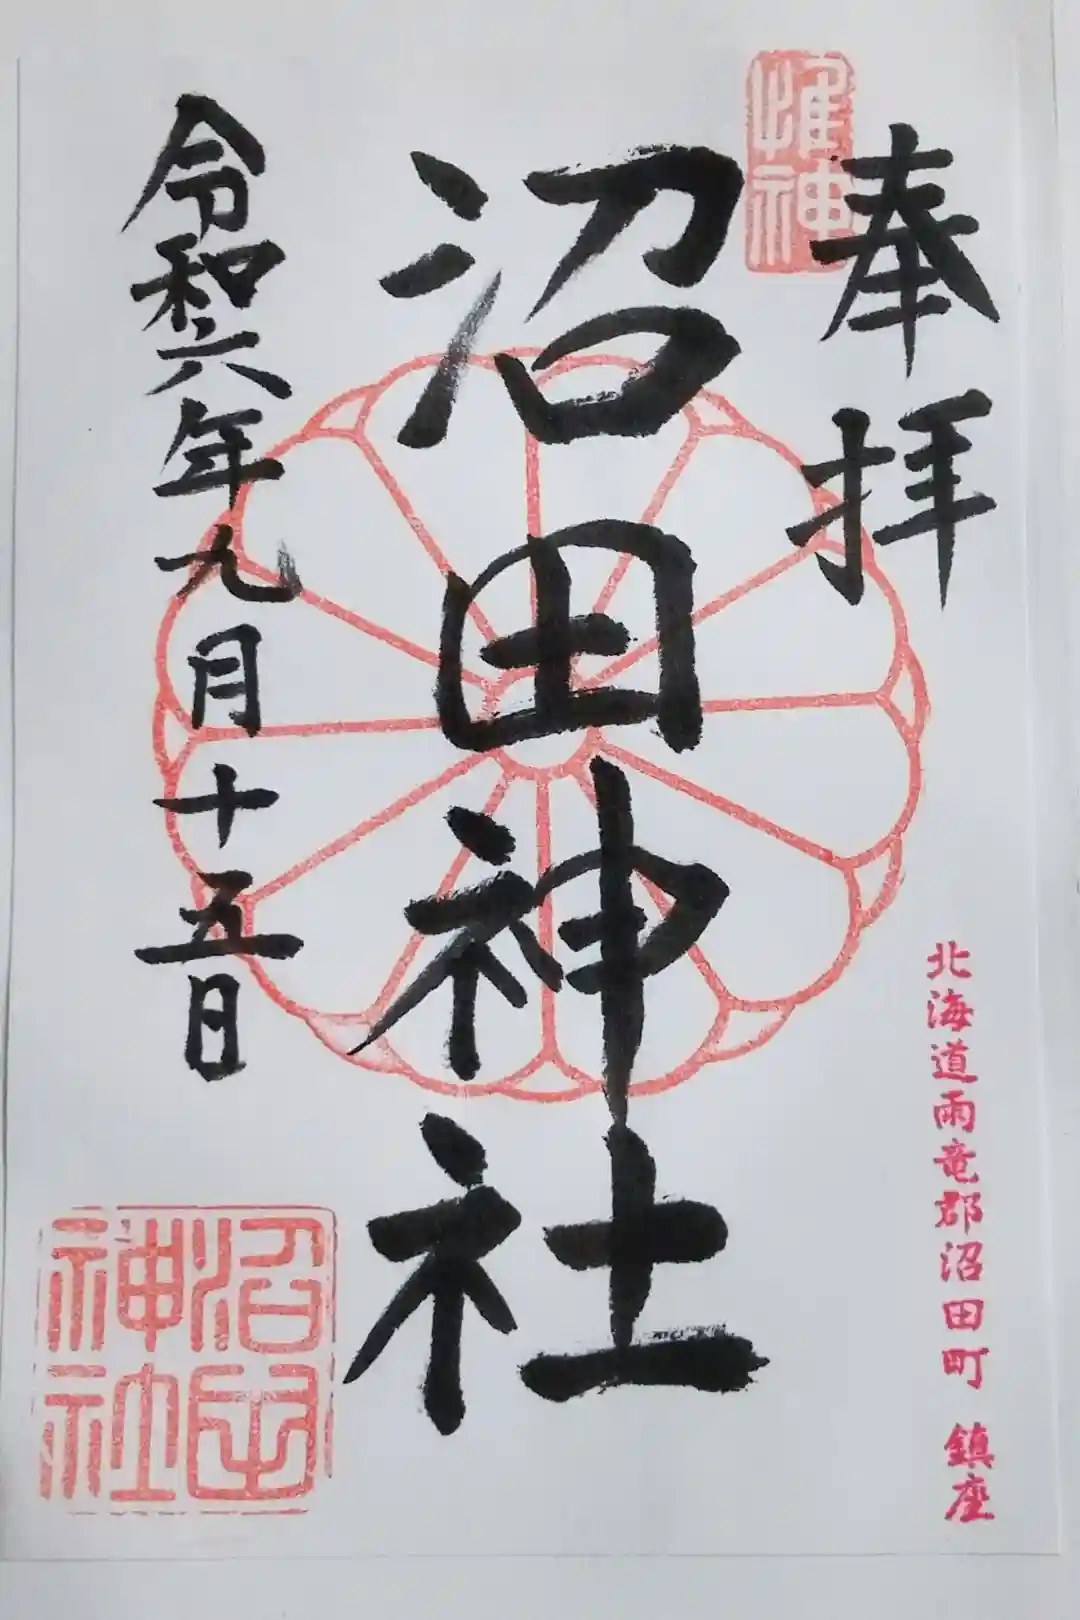 奉拝
惟神
沼田神社
令和六年九月十五日
沼田神社
北海道雨竜郡沼田町 鎮座